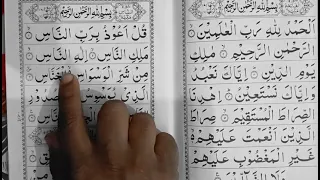 بِسْمِ اللهِ الرَّحْمٰنِ الرَّحِيْمِ
اَلْحَمْدُ لِلّٰهِ رَبِّ الْعٰلَمِيْنَ
الرَّحْمٰنِ الرَّحِيْمِ مٰلِكِ
يَوْمِ الدِّيْنِ اِيَّاكَ نَعْبُدُ
وَاِيَّاكَ نَسْتَعِيْنُ اِهْدِنَا
الصِّرَاطَ الْمُسْتَقِيْمَ صِرَاطَ
الَّذِيْنَ اَنْعَمْتَ عَلَيْهِمْ
غَيْرِ الْمَغْضُوْبِ عَلَيْهِمْ
وَلَا الضَّآلِّيْنَ
بِسْمِ اللهِ الرَّحْمٰنِ الرَّحِيْمِ
قُلْ اَعُوْذُ بِرَبِّ النَّاسِ
مَلِكِ النَّاسِ اِلٰهِ النَّاسِ
مِنْ شَرِّ الْوَسْوَاسِ الْخَنَّاسِ
الَّذِيْ يُوَسْوِسُ صُدُوْرِ